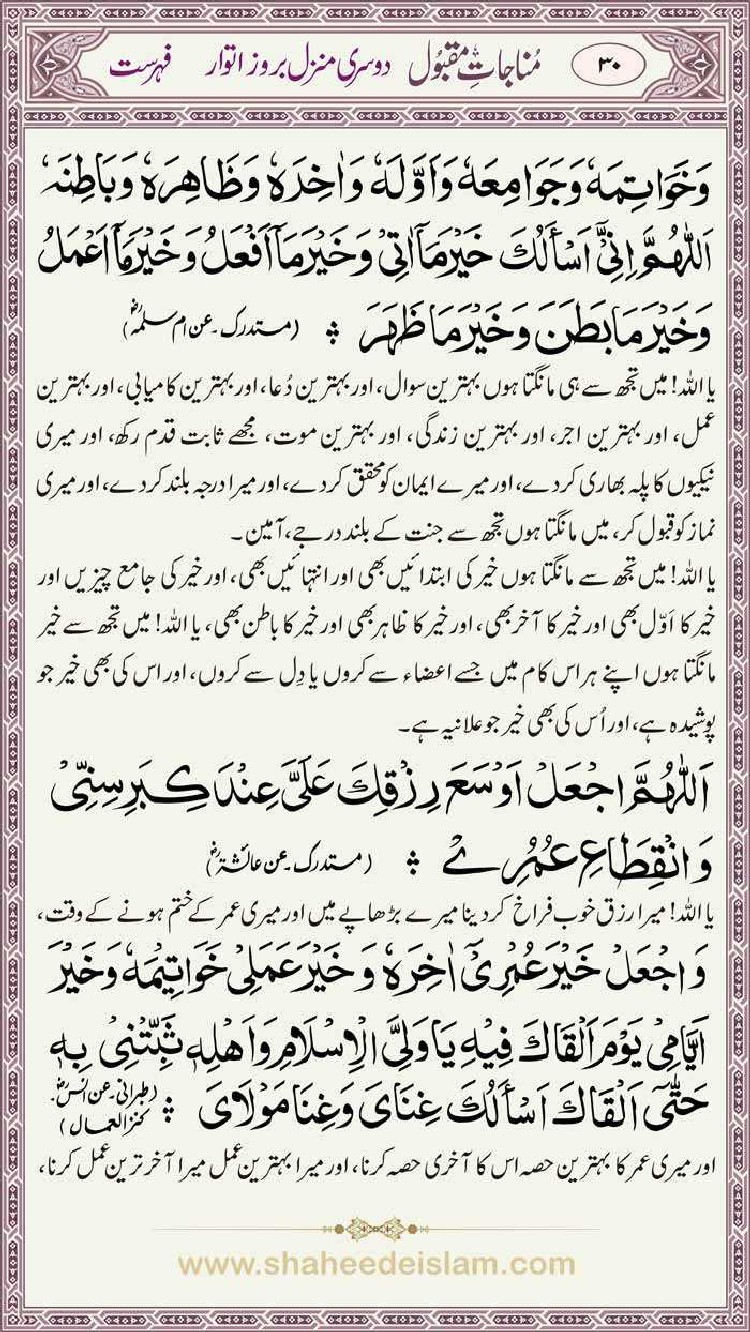 ۳۰ مُناجاتِ مقبُول دوسری منزل بروز اتوار فہرست
وَخَوَاتِمَهٗ وَجَوَامِعَهٗ وَاَوَّلَهٗ وَاٰخِرَهٗ وَظَاهِرَهٗ وَبَاطِنَهٗ
اَللّٰهُمَّ اِنِّیْۤ اَسْأَلُكَ خَیْرَ مَاۤ اٰتِیْ وَخَیْرَ مَاۤ اَفْعَلُ وَخَیْرَ مَاۤ اَعْمَلُ
وَخَیْرَ مَا بَطَنَ وَخَیْرَ مَا ظَهَرَ (مستدرک۔عن ام سلمہؓ)
یا اللہ! میں تجھ سے ہی مانگتا ہوں بہترین سوال، اور بہترین دُعا، اور بہترین کامیابی، اور بہترین
عمل، اور بہترین اجر، اور بہترین زندگی، اور بہترین موت، مجھے ثابت قدم رکھ، اور میری
نیکیوں کا پلہ بھاری کردے، اور میرے ایمان کو محقق کردے، اور میرا درجہ بلند کردے، اور میری
نماز کو قبول کر، میں مانگتا ہوں تجھ سے جنت کے بلند درجے، آمین۔
یا اللہ! میں تجھ سے مانگتا ہوں خیر کی ابتدائیں بھی اور انتہائیں بھی، اور خیر کی جامع چیزیں اور
خیر کا اَوّل بھی اور خیر کا آخر بھی، اور خیر کا ظاہر بھی اور خیر کا باطن بھی، یا اللہ! میں تجھ سے خیر
مانگتا ہوں اپنے ہر اس کام میں جسے اعضاء سے کروں یا دِل سے کروں، اور اس کی بھی خیر جو
پوشیدہ ہے، اور اُس کی بھی خیر جو علانیہ ہے۔
اَللّٰهُمَّ اجْعَلْ اَوْسَعَ رِزْقِكَ عَلَیَّ عِنْدَ كِبَرِ سِنِّیْ
وَانْقِطَاعِ عُمُرِیْ (مستدرک۔عن عائشۃؓ)
یا اللہ! میرا رزق خوب فراخ کردینا میرے بڑھاپے میں اور میری عمر کے ختم ہونے کے وقت،
وَاجْعَلْ خَیْرَ عُمُرِیْۤ اٰخِرَهٗ وَخَیْرَ عَمَلِیْ خَوَاتِیْمَهٗ وَخَیْرَ
اَیَّامِیْ یَوْمَ اَلْقَاكَ فِیْهِ یَا وَلِیَّ الْاِسْلَامِ وَاَهْلِهٖ ثَبِّتْنِیْ بِهٖ
حَتّٰۤی اَلْقَاكَ اَسْأَلُكَ غِنَایَ وَغِنَا مَوْلَایَ (طبرانی۔عن انسؓ۔ کنز العمال)
اور میری عمر کا بہترین حصہ اس کا آخری حصہ کرنا، اور میرا بہترین عمل میرا آخر ترین عمل کرنا،
www.shaheedeislam.com